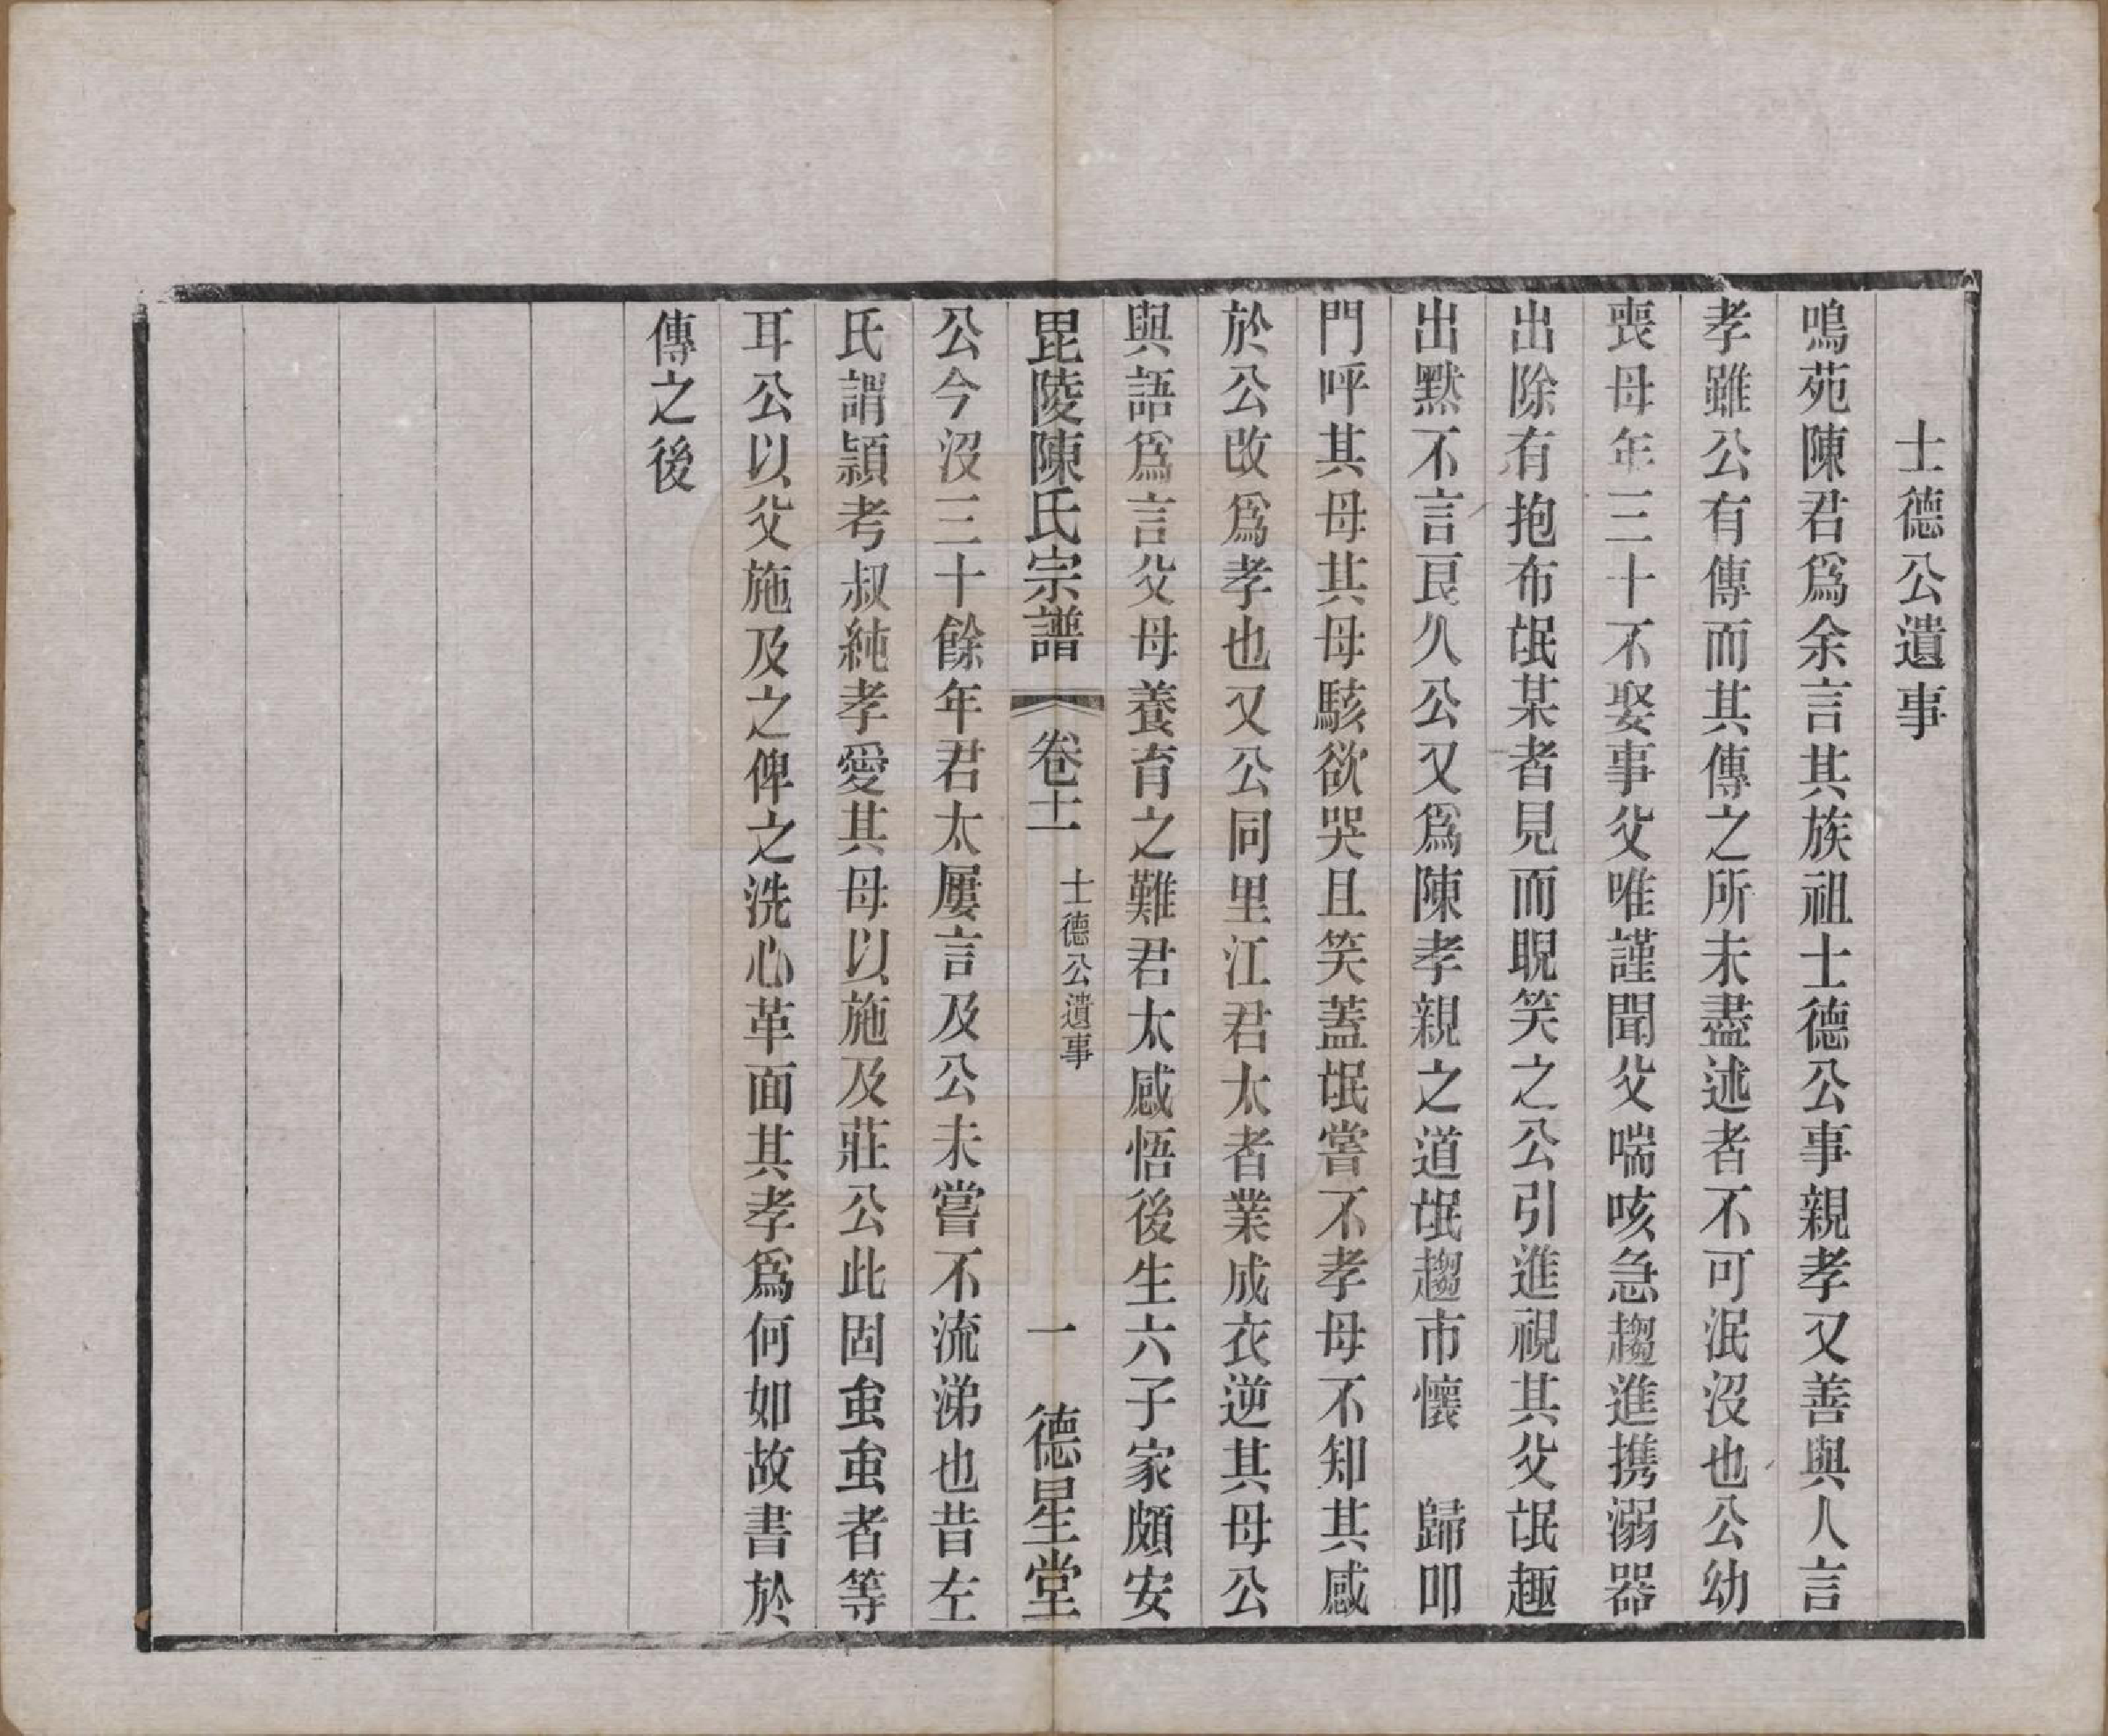 士德公遺事
鳴苑陳君爲余言其族祖士德公事親孝又善與人言
孝雖公有傳而其傳之所未盡述者不可泯沒也公幼
喪母年三十不娶事父唯謹聞父喘咳急趨進携溺器
出除有抱布氓某者見而睨笑之公引進視其父氓趣
出默不言良久公又爲陳孝親之道氓趨市懷　歸叩
門呼其母其母駭欲哭且笑蓋氓嘗不孝母不知其感
於公改爲孝也又公同里江君太者業成衣逆其母公
與語爲言父母養育之難君太感悟後生六子家頗安
毘陵陳氏宗譜 卷十一 士德公遺事 一 德星堂
公今沒三十餘年君太屢言及公未嘗不流涕也昔左
氏謂潁考叔純孝愛其母以施及莊公此固蚩蚩者等
耳公以父施及之俾之洗心革面其孝爲何如故書於
傳之後